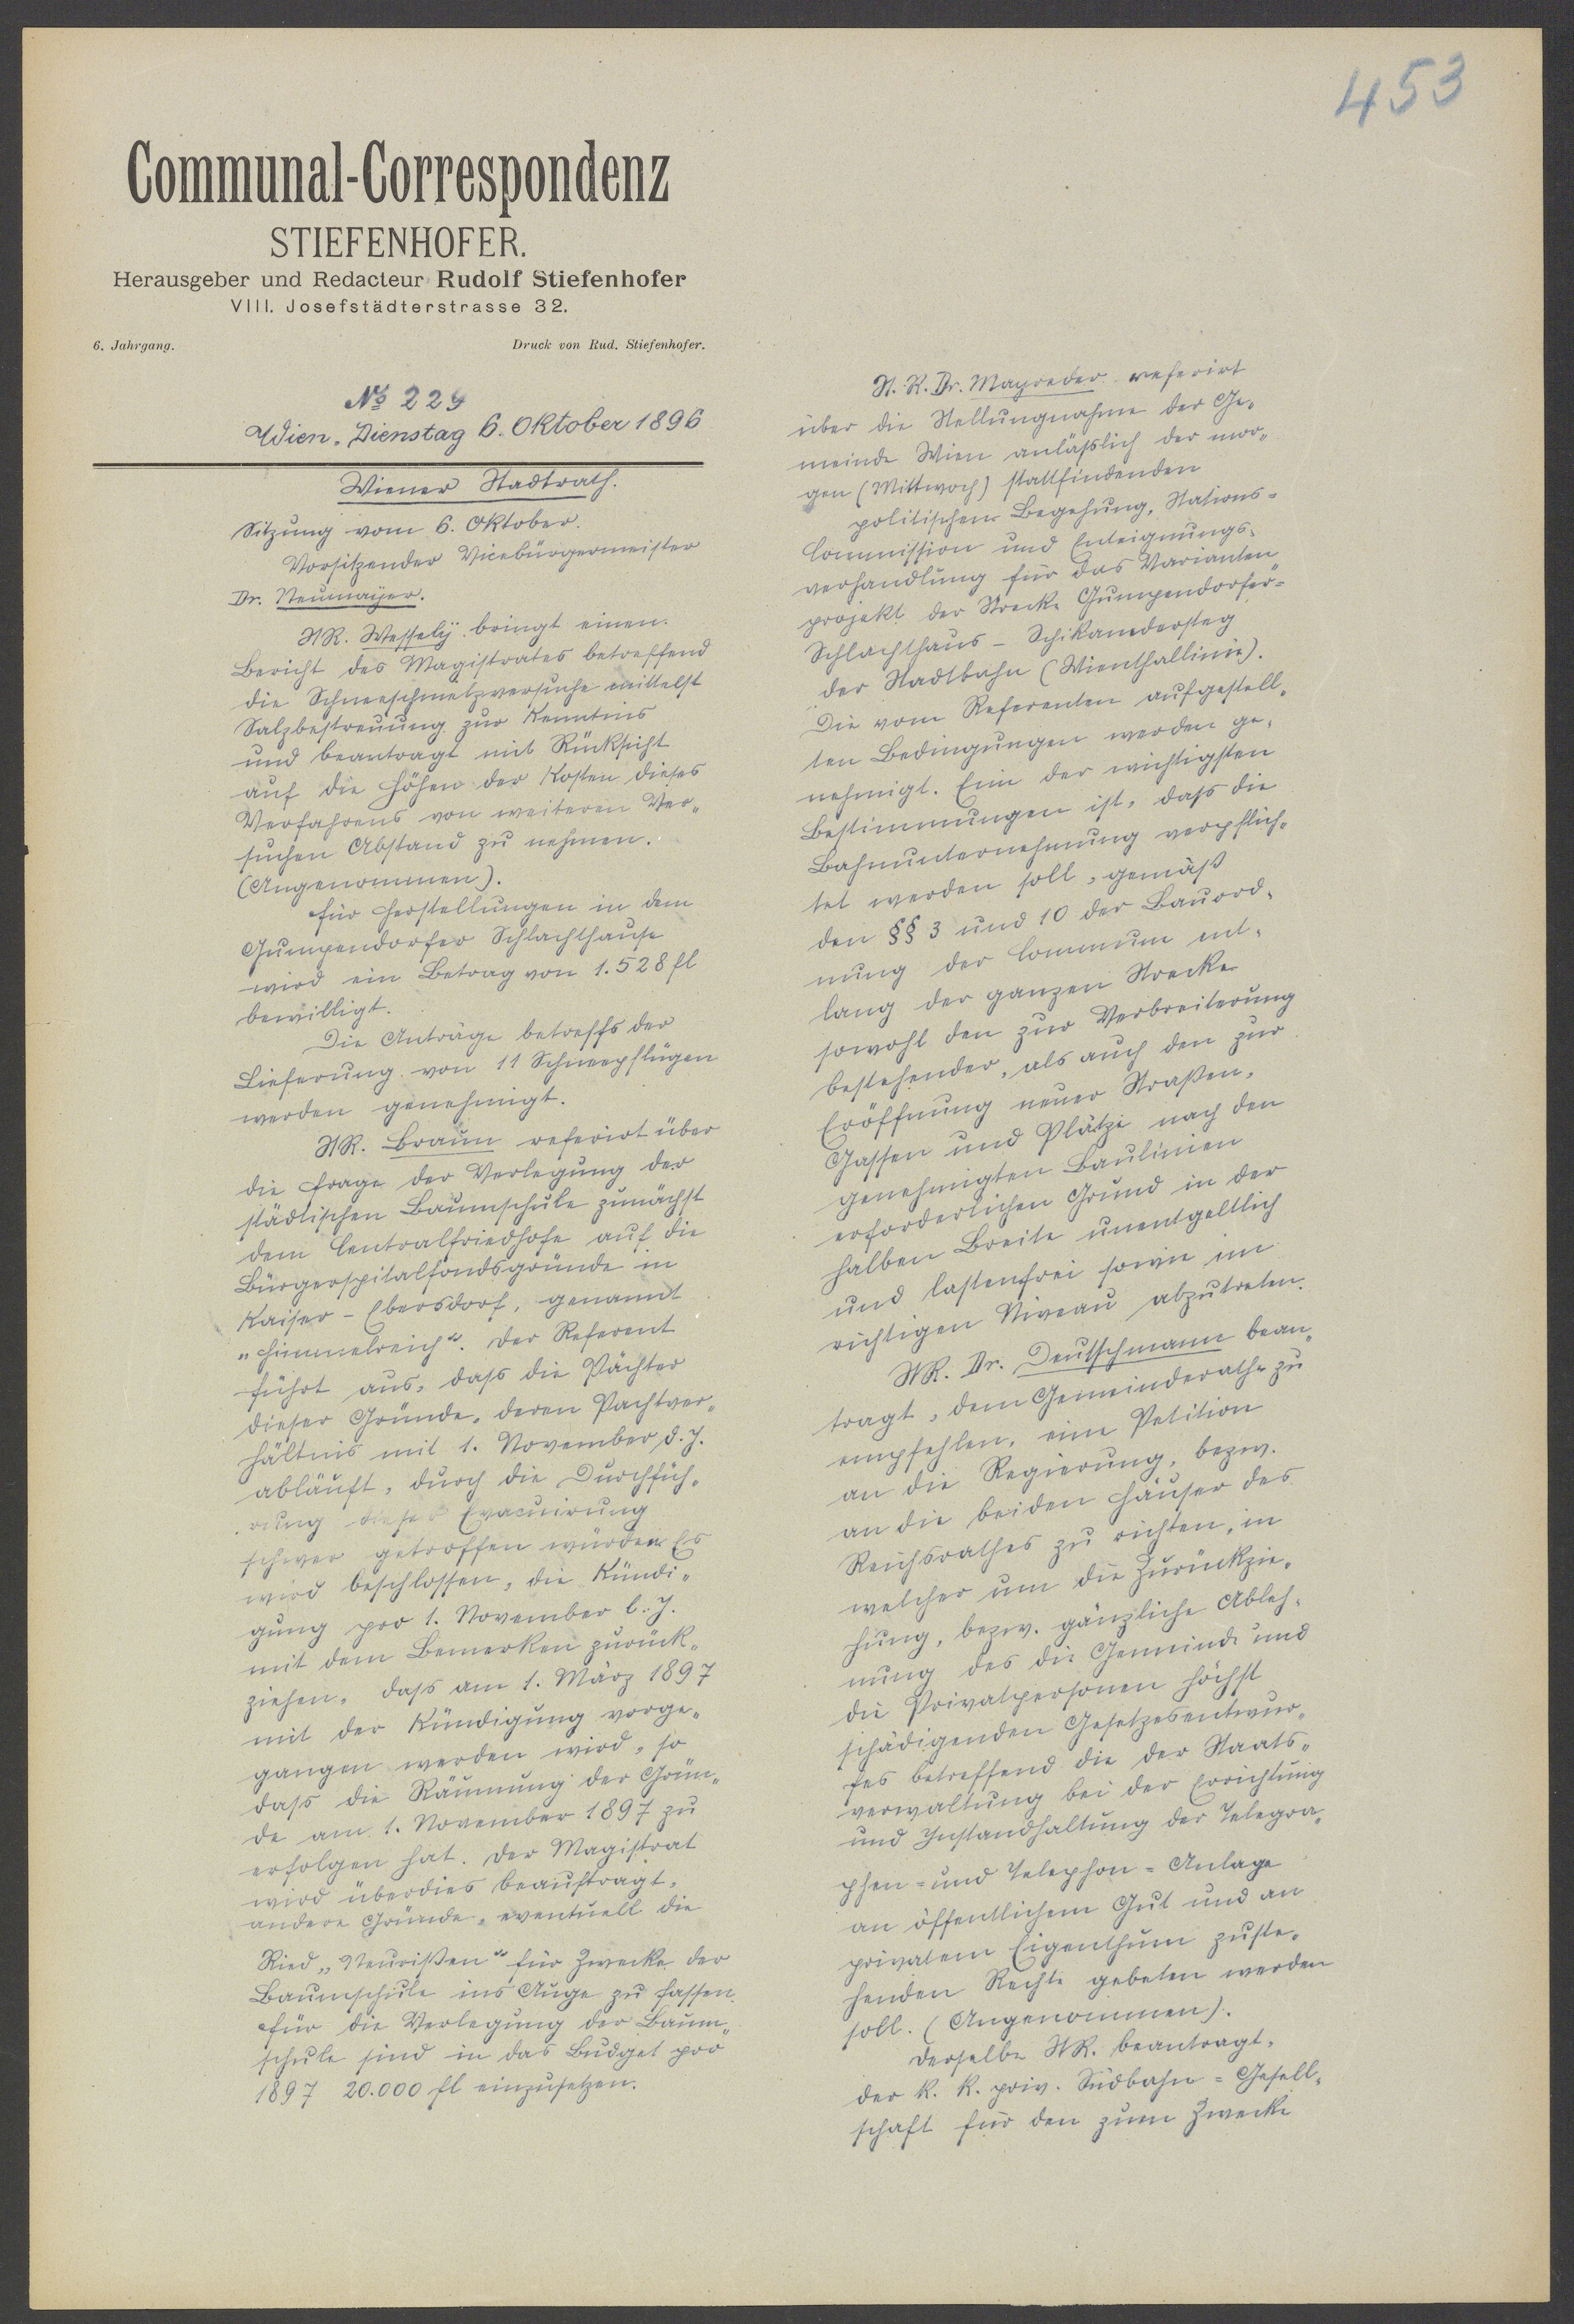 453
Communal-Correspondenz
STIEFENHOFER.
Herausgeber und Redacteur Rudolf Stiefenhofer
VIII. Josefstädterstrasse 32.
6. Jahrgang.
Druck von Rud. Stiefenhofer.
No 229
Wien, Dienstag 6. Oktober 1896
Wiener Stadtrath.
Sitzung vom 6. Oktober.
Vorsitzender Vicebürgermeister
Dr. Neumayer.
StR. Wessely bringt einen
Bericht des Magistrates betreffend
die Schneeschmelzversuche mittelst
Salzbestreuung zur Kenntnis
und beantragt mit Rücksicht
auf die Höhen der Kosten dieses
Verfahrens von weiteren Ver-
suchen Abstand zu nehmen.
(Angenommen).
Für Herstellungen in dem
Gumpendorfer Schlachthause
wird ein Betrag von 1.528 fl
bewilligt.
Die Anträge betreffs der
Lieferung von 11 Schneepflügen
werden genehmigt.
StR. Braun referirt über
die Frage der Verlegung der
städtischen Baumschule zunächst
dem Centralfriedhofe auf die
Bürgerspitalfondsgründe in
Kaiser-Ebersdorf, genannt
"Himmelreich". Der Referent
führt aus, dass die Pächter
dieser Gründe, deren Pachtver-
hältnis mit 1. November d. J.
abläuft, durch die Durchfüh-
rung dieser Evacuirung
schwer getroffen würden. Es
wird beschlossen, die Kündi-
gung pro 1. November l. J.
mit dem Bemerken zurück-
ziehen, dass am 1. März 1897
mit der Kündigung vorge-
gangen werden wird, so
dass die Räumung der Grün-
de am 1. November 1897 zu
erfolgen hat. Der Magistrat
wird überdies beauftragt,
andere Gründe, eventuell die
Ried "Neurißen" für Zwecke der
Baumschule ins Auge zu fassen.
Für die Verlegung der Baum-
schule sind in das Budget pro
1897 20.000 fl einzusetzen.
St. R. Dr. Mayreder referirt
über die Stellungnahme der Ge-
meinde Wien anläßlich der mor-
gen (Mittwoch) stattfindenden
politischen Begehung, Stations-
Commission und Enteignungs-
verhandlung für das Varianten
projekt der Strecke Gumpendorfer-
Schlachthaus - Schikanedersteg
der Stadtbahn (Wienthallinie).
Die vom Referenten aufgestell-
ten Bedingungen werden ge-
nehmigt. Eine der wichtigsten
Bestimmungen ist, dass die
Bahnunternehmung verpflich-
tet werden soll, gemäß
den §§ 3 und 10 der Bauord-
nung der Commune ent-
lang der ganzen Strecke
sowohl den zur Verbreiterung
bestehender, als auch den zur
Eröffnung neuer Straßen,
Gassen und Plätze nach den
genehmigten Baulinien
erforderlichen Grund in der
halben Breite unentgeltlich
und lastenfrei sowie im
richtigen Niveau abzutreten.
StR. Dr. Deutschmann bean-
tragt, dem Gemeinderathe zu
empfehlen, eine Petition
an die Regierung, bezw.
an die beiden Häuser des
Reichsrathes zu richten, in
welcher um die Zurückzie-
hung, bezw. gänzliche Ableh-
nung des die Gemeinde und
die Privatpersonen höchst
schädigenden Gesetzesentwur-
fes betreffend die der Staats-
verwaltung bei der Errichtung
und Instandhaltung der Telegra-
phen- und Telephon-Anlage
an öffentlichem Gut und an
privatem Eigenthum zuste-
henden Rechte gebeten werden
soll. (Angenommen).
Derselbe StR. beantragt,
der k. k. priv. Südbahn-Gesell-
schaft für den zum Zwecke